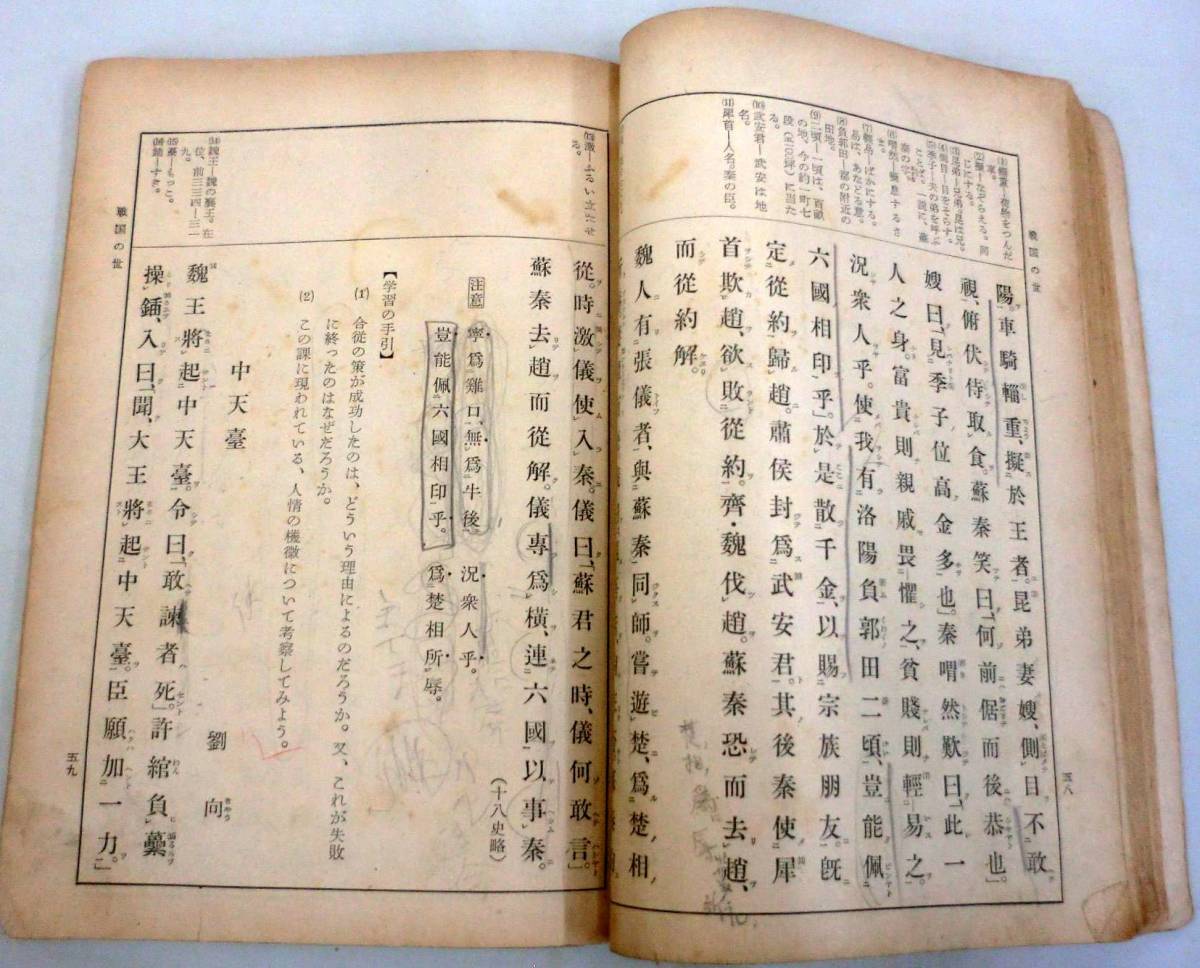 戦国の世
五八
陽。車騎輜重、擬於王者。昆弟妻嫂、側目不敢
視、俯伏侍取食。蘇秦笑曰、「何前倨而後恭也。」
嫂曰、「見季子位高金多也。」秦喟然歎曰、「此一
人之身。富貴則親戚畏懼之、貧賤則輕易之。
況衆人乎。使我有洛陽負郭田二頃、豈能佩
六國相印乎。」於是散千金、以賜宗族朋友。既
定從約歸趙。肅侯封爲武安君。其後秦使犀
首欺趙、欲敗從約。齊・魏伐趙。蘇秦恐而去趙、
而從約解。
魏人有張儀者、與蘇秦同師。嘗遊楚、爲楚相
(2)擬―なぞらえる。同
じにする。
(3)昆弟―兄弟。昆は兄。
(4)側目―目をそらす。
(5)季子―夫の弟を呼ぶ
ことば。一説に、蘇
秦の字。
(7)輕易―ばかにする。
易は、あなどる意。
(8)負郭田―都の附近の
田地。
(9)二頃―一頃は、百畝
の地。今の約一町七
に当た
る。
(10)武安君―武安は地
名。
(11)犀首―人名。秦の臣。
從。時激儀使入秦。儀曰、「蘇君之時、儀何敢言。」
蘇秦去趙而從解。儀專爲橫、連六國以事秦。
(十八史略)
注意 寧爲雞口、無爲牛後。 況衆人乎。
豈能佩六國相印乎。 爲楚相所辱。
【学習の手引】
(1) 合従の策が成功したのは、どういう理由によるのだろうか。又、これが失敗
に終ったのはなぜだろうか。
(2) この課に現われている、人情の機微について考察してみよう。
中天臺 劉向
魏王將起中天臺。令曰、「敢諫者死。」許綰負蘽
操鍤、入曰、「聞、大王將起中天臺。臣願加一力。」
激―ふるい立たせ
る。
(14)魏王―魏の襄王。在
位、前三三四―三一
九。
(15)蘽―もっこ。
(16)鍤―すき。
戦国の世
五九